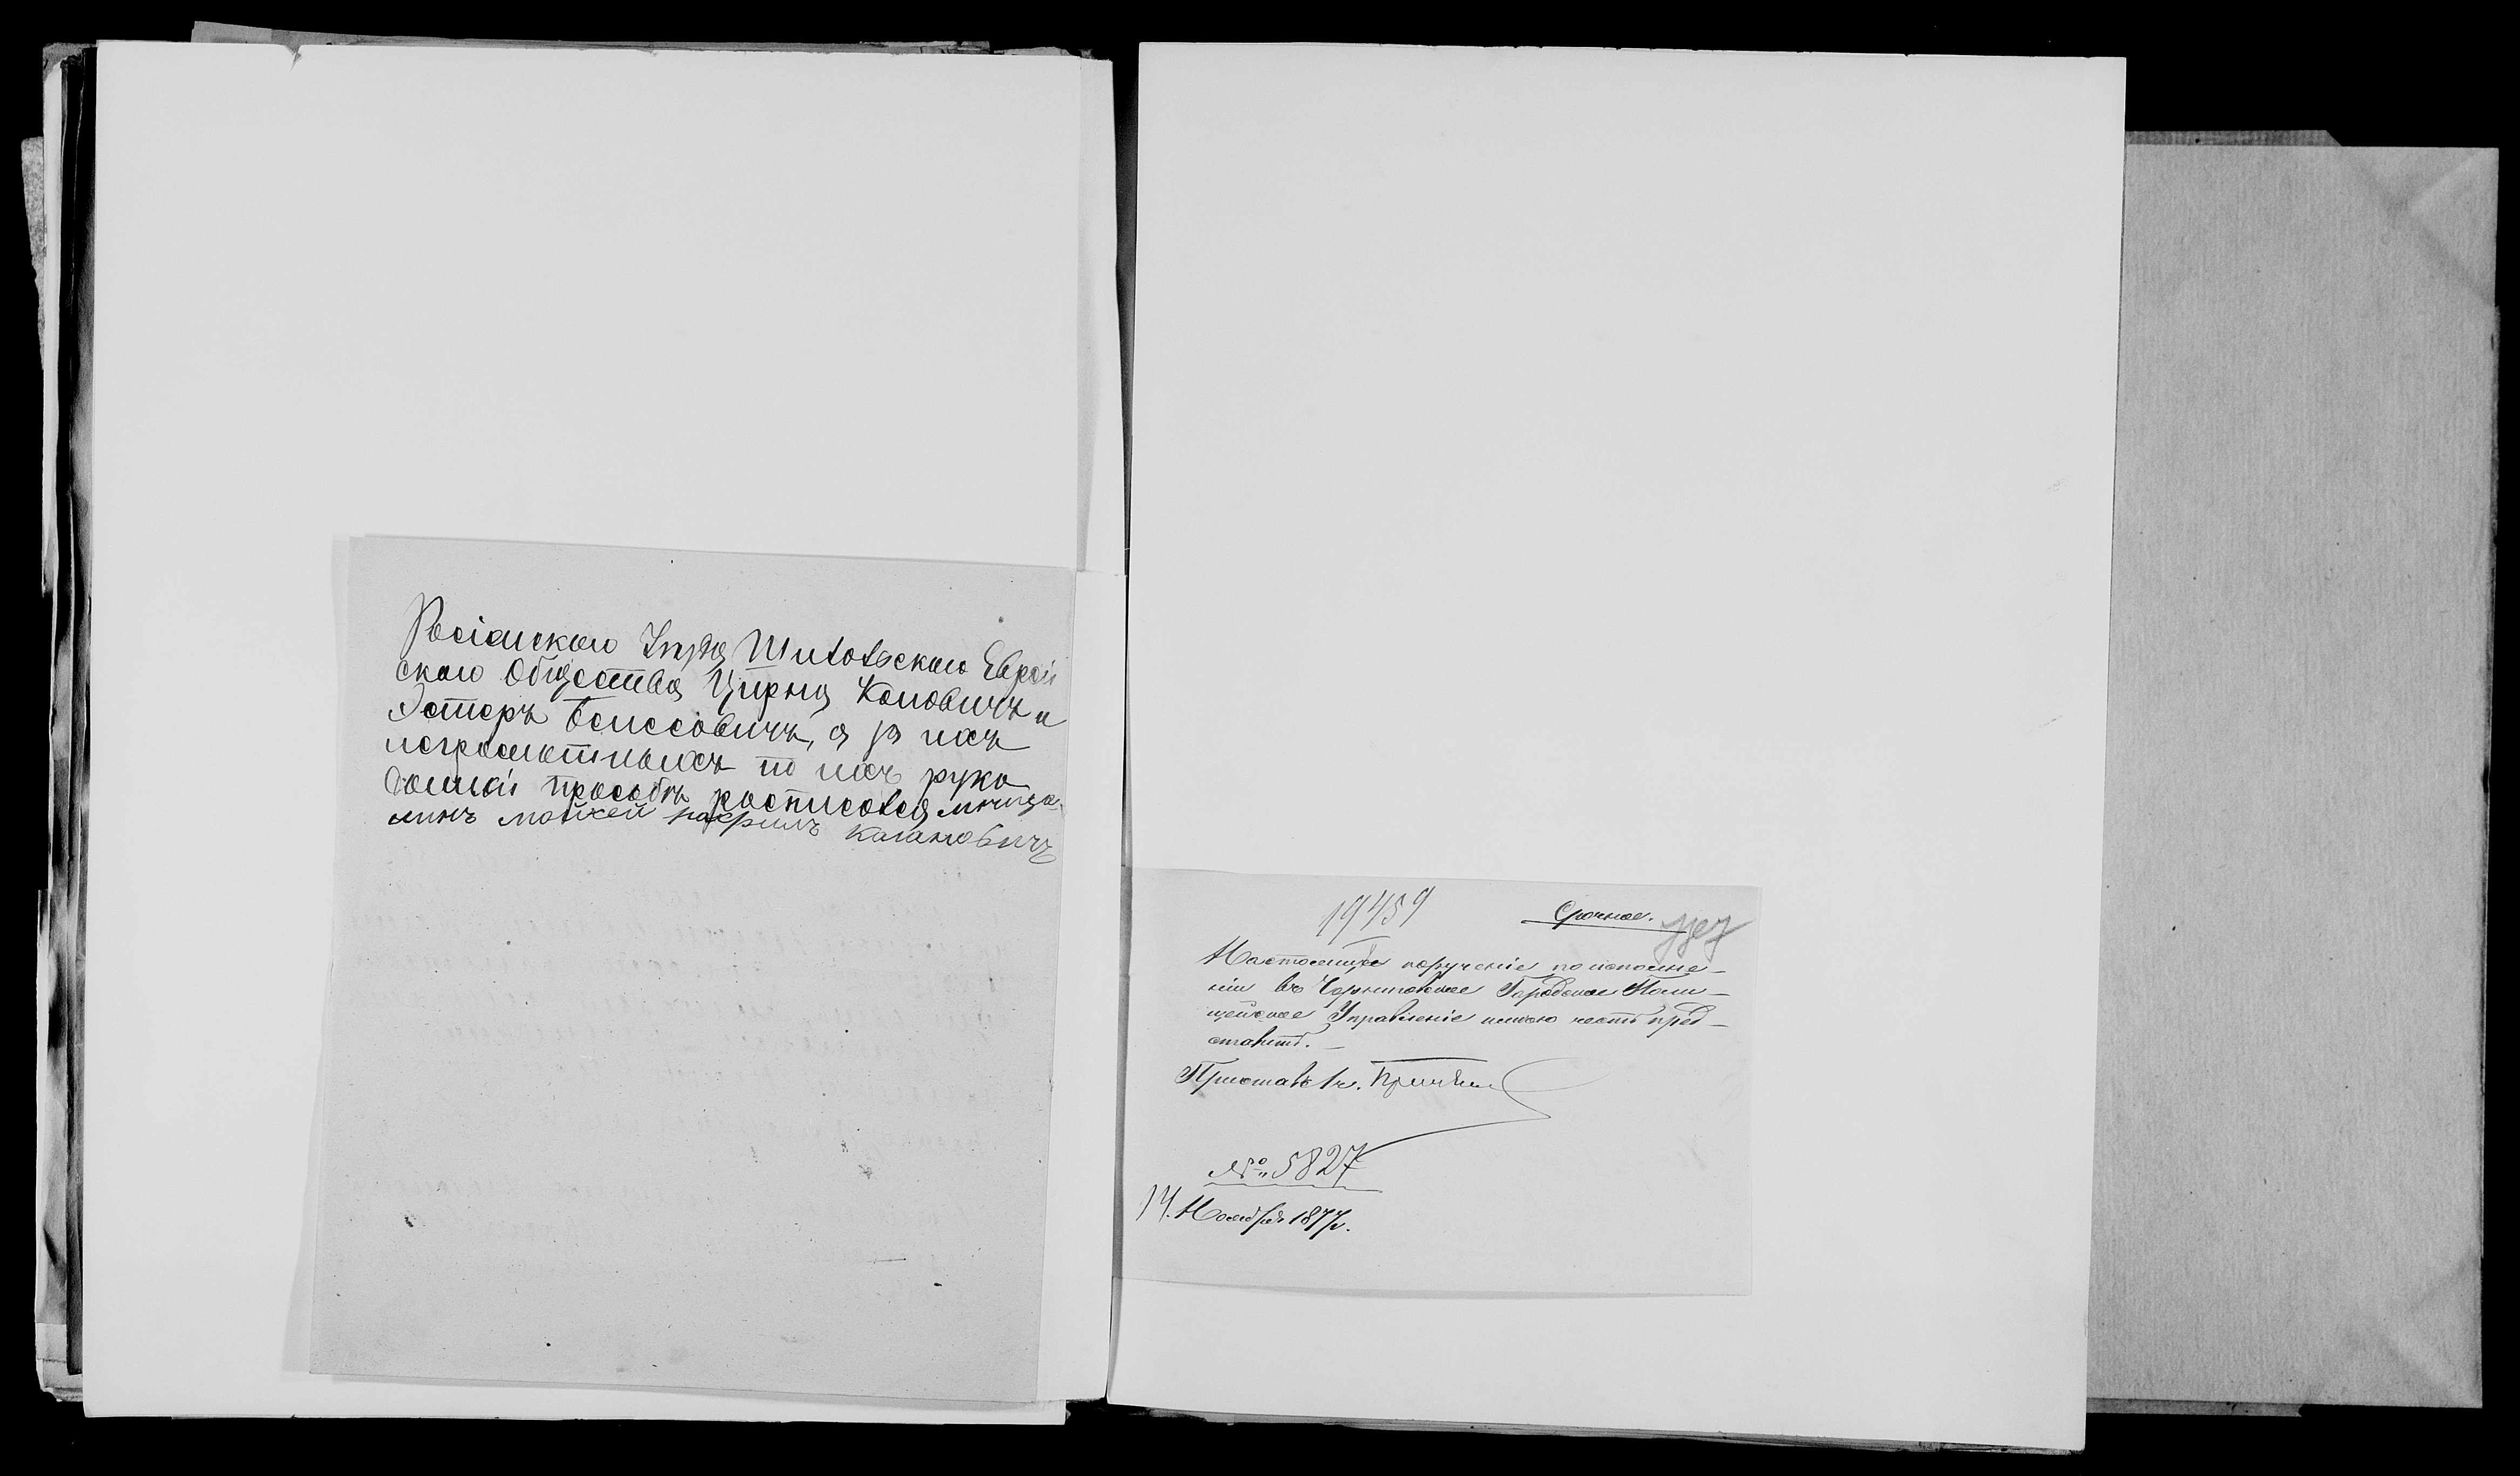 Росіенскаго Уезда Шиловскаго Еврей
скаго Общества Цирна Каповичъ и
Эстеръ Бениссовичъ, а за ихъ
неграмотныхъ по ихъ руко
данной прозьбѣ росписолся мѣща
нинъ Мовшей Кагановичъ
19459
Срочное.
Настоящее порученіе по исполне-
ніи въ Городское Поли-
цейское Управленіе имѣю честь пред-
ставить.
Приставъ 1 ч.
№ 5827
14. Ноября 1877 г.